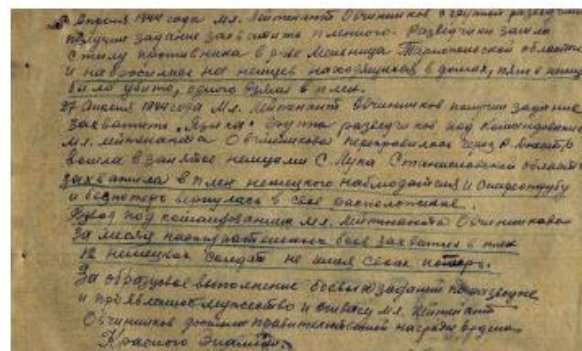 Апреля 1944 года Мл. Лейтенант Овчинников с группой разведчик
получил задание захватить пленного. Разведчики зашли
с тылу противника в р-не Тарнопольской области
и набросились на немцев находящихся в домах, пять немцев
было убито, одного взяли в плен.
27 Апреля 1944 года Мл. Лейтенант Овчинников получил задание
захватить "Языка". Группа разведчиков под командованием
Мл. лейтенанта Овчинникова переправилась через р. Днестр
вошла в занятое немцами с. Лука Станиславской области
захватила в плен немецкого наблюдателя и стереотрубу
и без потерь вернулась в свое расположение.
Взвод под командованием Мл. Лейтенанта Овчинникова
за месяц наступательных боев захватил в плен
12 немецких солдат не имея своих потерь.
За образцовое выполнение боевых заданий по разведке
и проявленное мужество и отвагу Мл. Лейтенант
Овчинников достоин правительственной награды ордена
Красного Знамени.